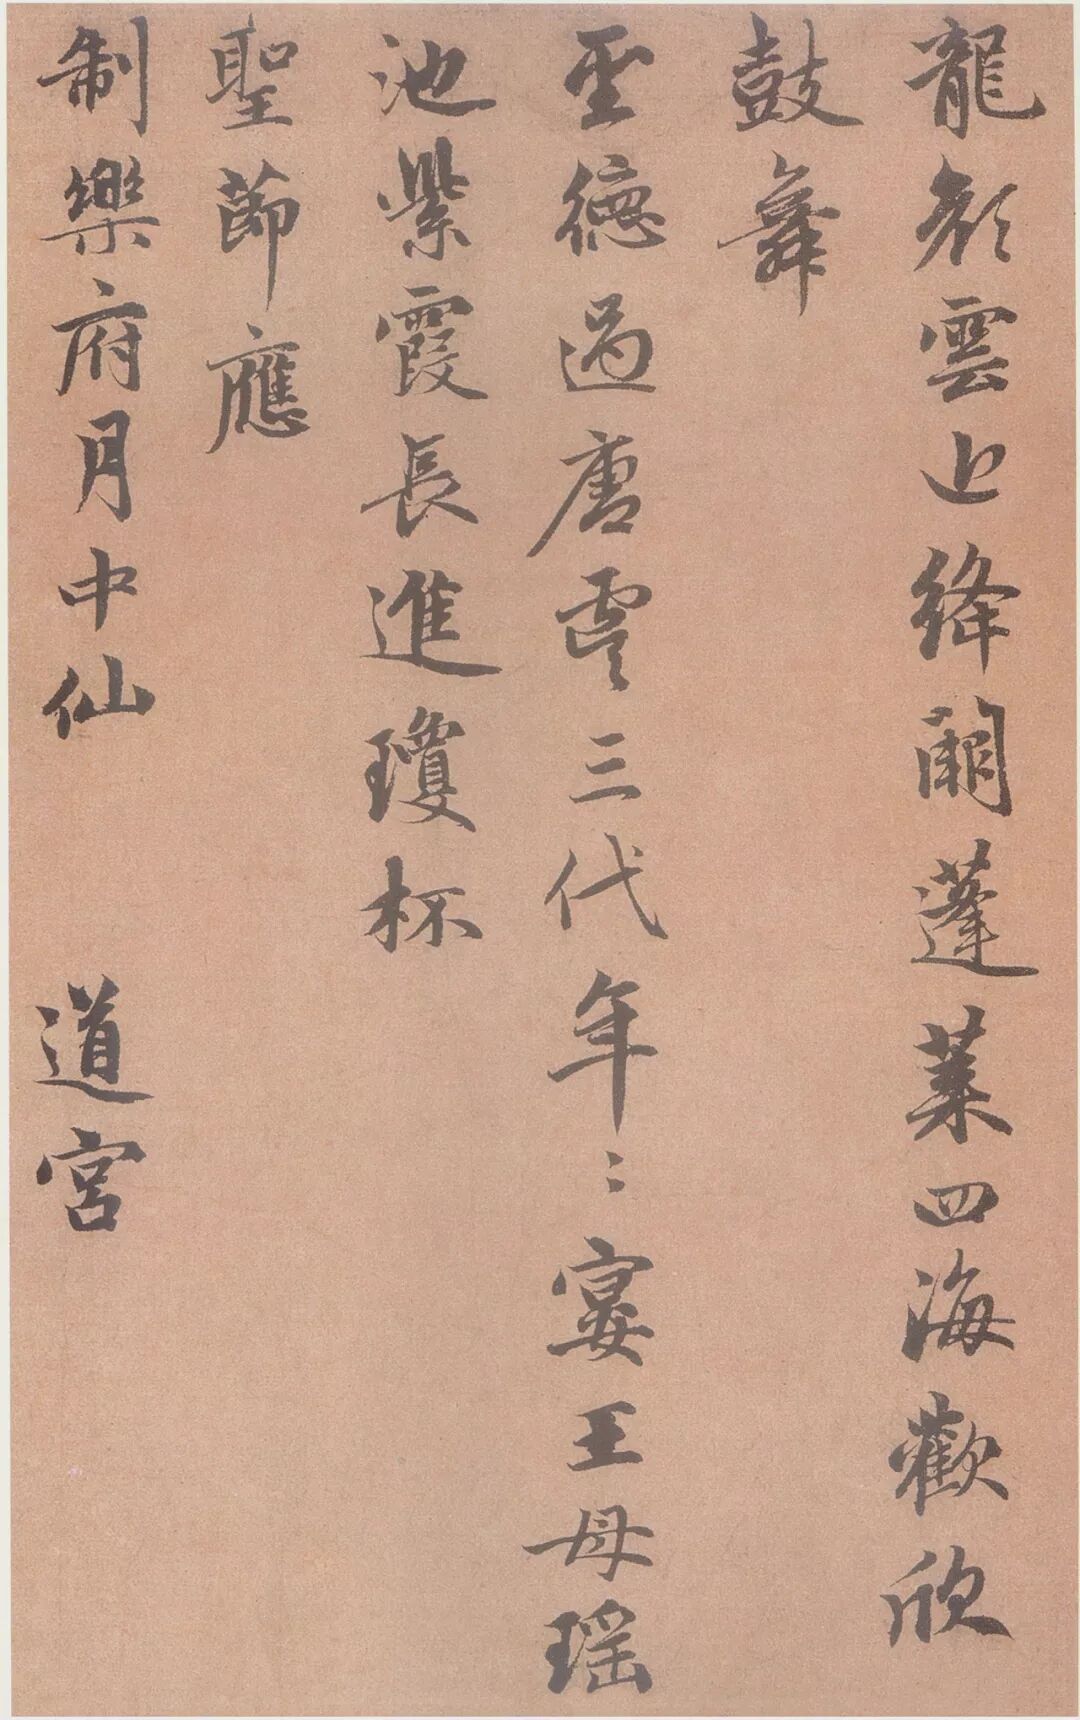 龍顔雲上絳闕蓬莱四海歡欣
鼓舞
聖德過唐虞三代年〻宴王母瑶
池紫霞長進瓊杯
聖節應
制樂府月中仙　道宮